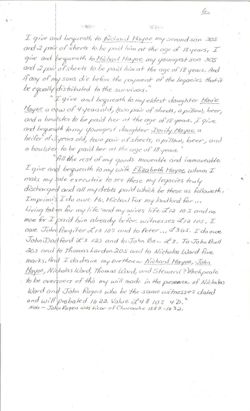 I give and bequeath to Richard Mayee my second son 30s
and 2 pair of sheets to be paid him at the age of 18 years, I
give and bequeath to Michael Mayee my youngest son 30s
and 2 pair of sheets to be paid him at the age of 18 years. And
if any of my sons die before the payment of the legacies that it
be equally distributed to the survivors."
I give and bequeath to my eldest daughter Marie
Mayee a cow of 4 years old, two pair of sheets, a pillow, beer,
and a boulster to be paid her at the age of 18 years. I give
and bequeath to my youngest daughter a
heifer of 2 years old, two pair of sheets, a pillow, beer, and
a boulster to be paid her at the age of 18 years.
"All the rest of my goods movable and immovable
I give and bequeath to my wife Elizabeth Mayee, whom I
make my sole executrix to see these my legacies truly
discharged and all my debts paid which be these as followeth:
Imprimis I do owe Mr. Michael for my
living taken for my life and my wives life £12 10s and no
more for I paid him already to for witnesses £12 10s, I
owe John £1 10s and to Peter of 3ws. I do owe
John £3 and to John £2. To John
20s and to Thomas 20s and to Nicholas Ward five
marks. And I do desire my brothers Richard Mayee, John
Mayee, Nicholas Ward, Thomas Ward, and Steward
to be overseers of this my will made in the presence of Nicholas
Ward and John Rogers who be the same witnesses
and will probated 1622. Value £48 10s 4D."
Note - John Rogers was Vicar of